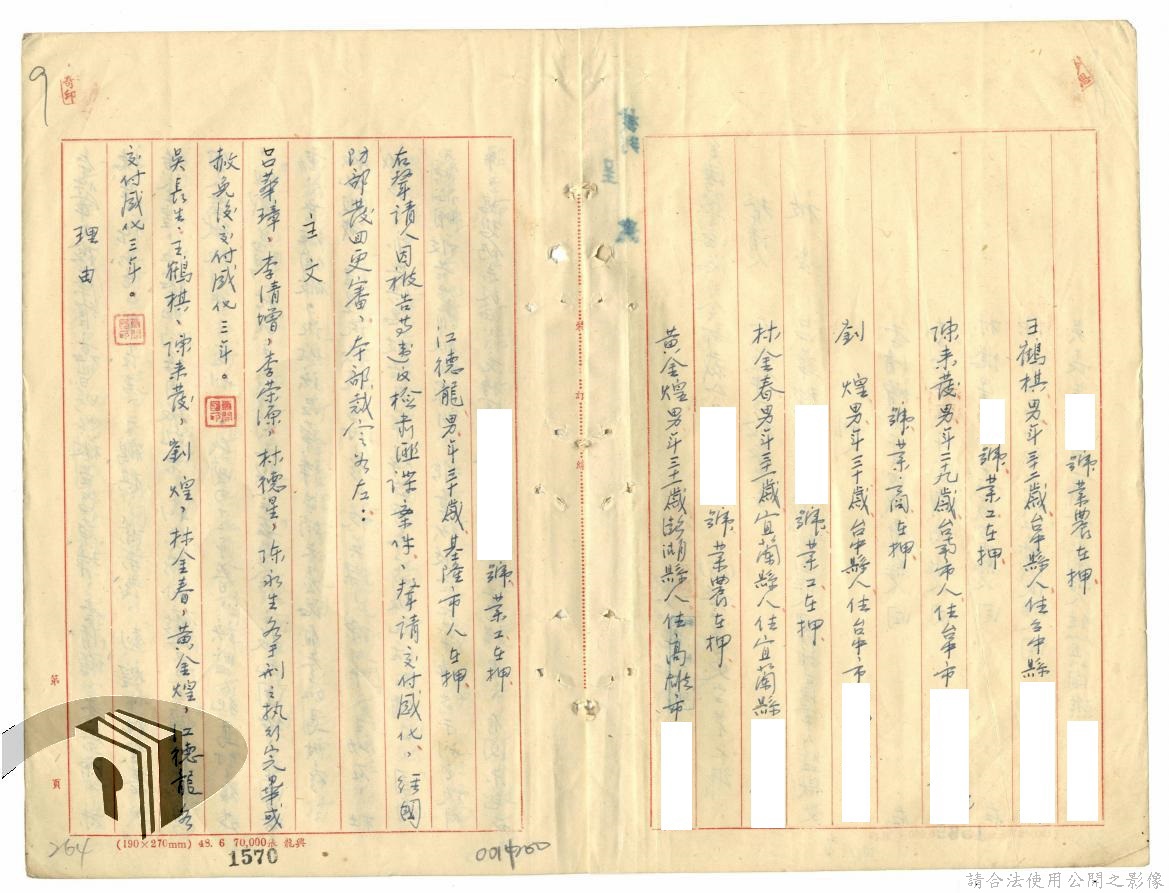 號業農在押
王鶴棋男年三二歲台中縣人住台中縣
號業工在押
陳來發男年二十九歲台南市人住台南市
號業商在押
劉 煌男年三十歲台中縣人住台中市
號業工在押
林金春男年三三歲宜蘭縣人住宜蘭縣
號業農在押
黃金煌男年三十一歲澎湖縣人住高雄市
號業工在押
江德龍男年三十歲基隆市人在押
右聲請人因被告等違反檢肅匪諜案件、聲請交付感化，經國
防部發回更審、本部裁定如左：
主文
呂華璋，李清增，李榮源，林德星，陳永生各于刑之執行完畢或
赦免後交付感化三年。
吳長生、王鶴棋、陳來發，劉 煌，林金春，黃金煌，江德龍各
交付感化三年。
理由
第 頁
裝 訂 線
(190×270mm) 48. 6 70,000張 龍興
1570
264
9
請合法使用公開之影像